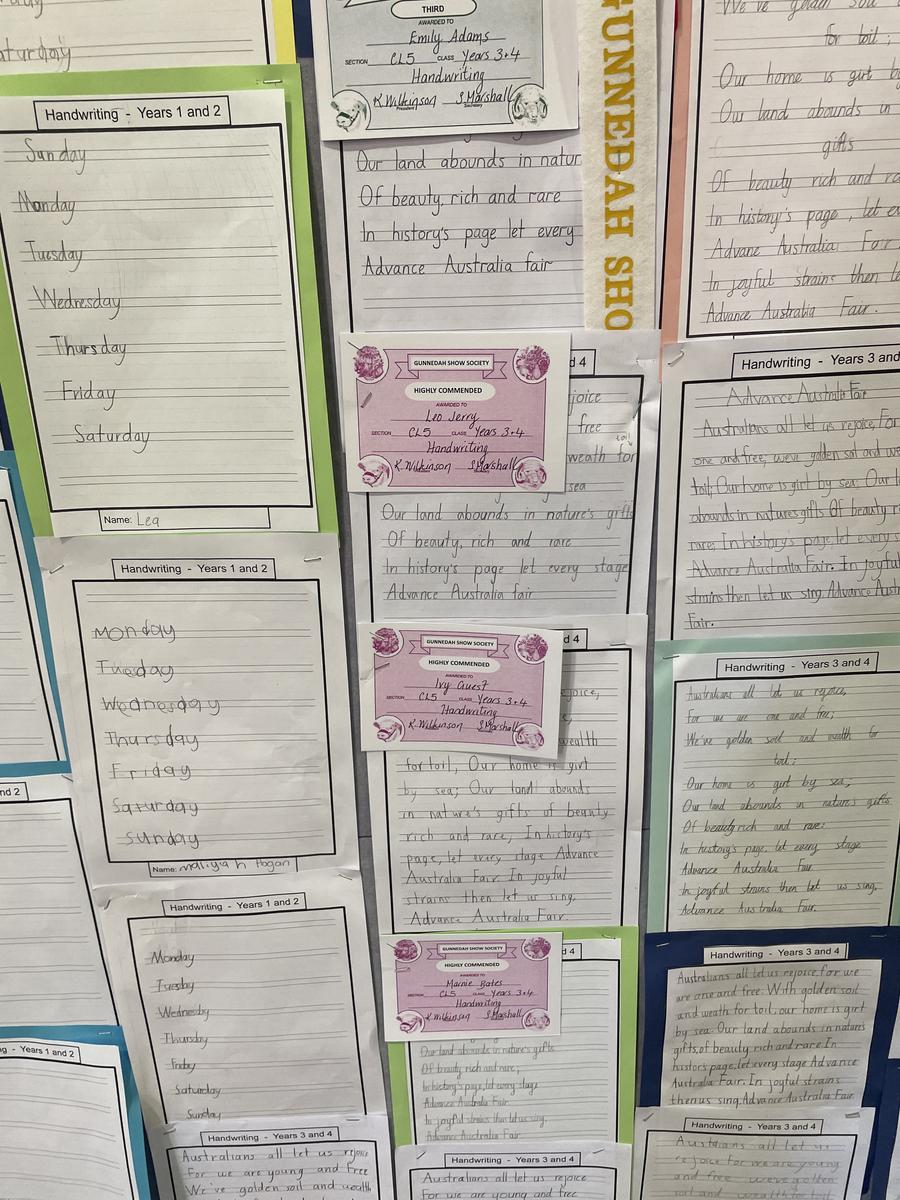 aturday
Handwriting - Years 1 and 2
Sunday
Monday
Tuesday
Wednesday
Thursday
Friday
Saturday
Name: Lea
Handwriting - Years 1 and 2
Monday
Tuesday
Wednesday
Thursday
Friday
Saturday
Sunday
Name: Maliyah Hogan
nd 2
Handwriting - Years 1 and 2
Monday
Tuesday
Wednesby
Thursday
Friday
Saturday
Sunday
ng - Years 1 and 2
Handwriting - Years 3 and 4
Australians all let us rejoice
For we are young and free
We've golden soil and wealth
THIRD
AWARDED TO
Emily Adams
SECTION CL5 CLASS Years 3+4
Handwriting
K.Wilkinson S.Marshall
President Secretary
Our land abounds in natur
Of beauty, rich and rare
In history's page let every
Advance Australia fair
GUNNEDAH SHO
d 4
GUNNEDAH SHOW SOCIETY
HIGHLY COMMENDED
AWARDED TO
Leo Jerry
SECTION CL5 CLASS Years 3+4
Handwriting
K.Wilkinson S.Marshall
ejoice
free
toil
wealth for
sea
Our land abounds in nature's gifts
Of beauty, rich and rare
In history's page let every stage
Advance Australia fair
d 4
GUNNEDAH SHOW SOCIETY
HIGHLY COMMENDED
AWARDED TO
Ivy Guest
SECTION CL5 CLASS Years 3+4
Handwriting
K.Wilkinson S.Marshall
ejoice,
e,
wealth
for toil, Our home is girt
by sea; Our land abounds
in nature's gifts of beauty
rich and rare, In history's
page, let every stage Advance
Australia Fair. In joyful
strains then let us sing,
Advance Australia Fair.
d 4
GUNNEDAH SHOW SOCIETY
HIGHLY COMMENDED
AWARDED TO
Marnie Bates
SECTION CL5 CLASS Years 3+4
Handwriting
K.Wilkinson S.Marshall
Our land abounds in nature's gifts
Of beauty rich and rare;
In history's page, let every stage
Advance Australia Fair
In joyful strains then let us sing.
Advance Australia Fair.
Handwriting - Years 3 and 4
Australians all let us rejoice
For we are young and free
We've golden soil
for toil;
Our home is girt b
Our land abounds in
gifts
Of beauty rich and ra
In history's page, let ev
Advane Australia Fair.
In joyful strains then le
Advance Australia Fair.
Handwriting - Years 3 and
Advance Australia Fair
Australians all let us rejoice, For
one and free; we've golden soil and we
toil; Our home is girt by sea; Our l
abounds in natures gifts Of beauty r
rare; In history's page, let every s
Advance Australia Fair. In joyful
strains then let us sing, Advance Aust
Fair.
Handwriting - Years 3 and 4
Australians all let us rejoice,
For we are one and free;
We've golden soil and wealth for
toil;
Our home is girt by sea;
Our land abounds in nature's gifts
Of beauty rich and rare;
In hestory's page, let every stage
Advance Australia Fair.
In joyful strains then let us sing,
Advance Australia Fair.
Handwriting - Years 3 and 4
Australians all let us rejoice, for we
are one and free. With golden soil
and weath for toil, our home is girt
by sea. Our land abounds in natures
gifts, of beauty rich and rare. In
histors page, let every stage Advance
Australia Fair. In joyful strains
then us sing, Advance Australia Fair
Handwriting - Years 3 and 4
Austrians all let us
rejoice For we are young
and free we've golden
soil and